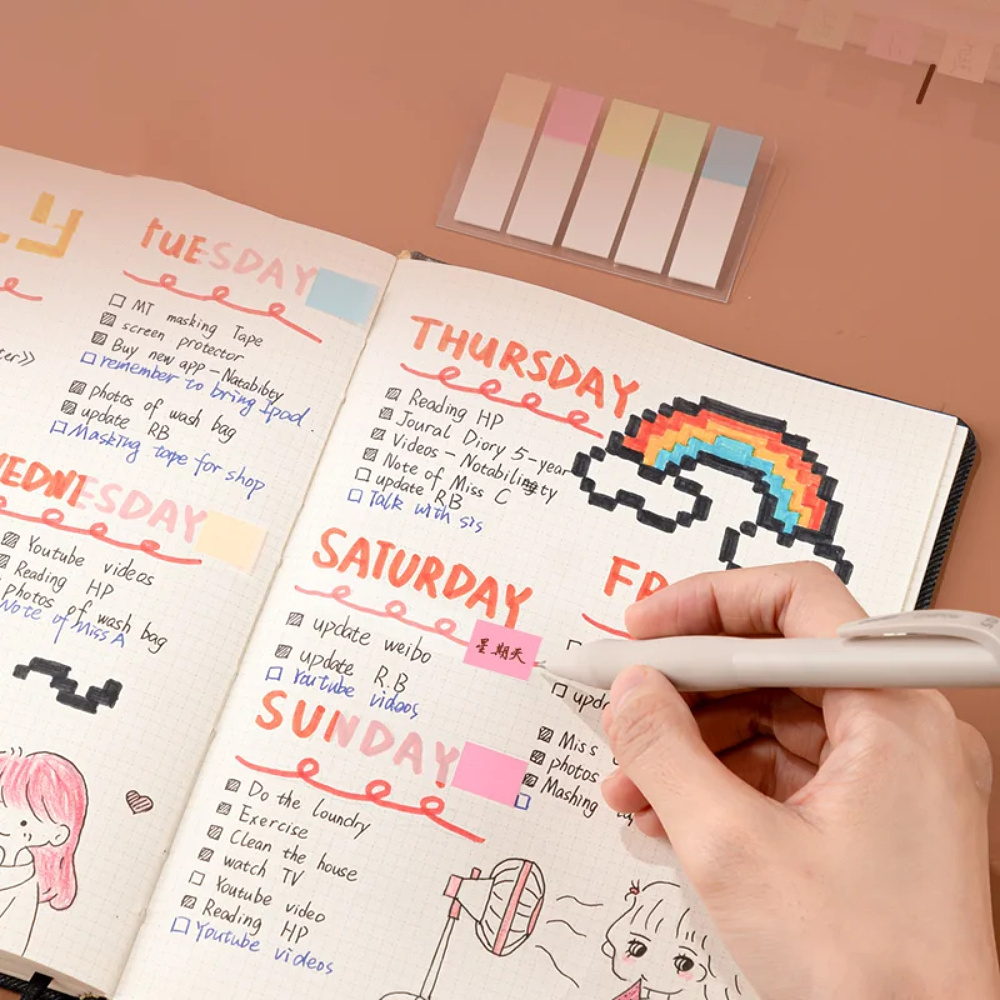 TUESDAY
MT masking Tape
screen protector
Buy new app - Notabibty
remember to bring Ipad.
photos of wash bag
update RB
Masking tape for shop
WEDNESDAY
Youtube videos
Reading HP
photos of wash bag
Note of Miss A
THURSDAY
Reading HP
Joural Diary 5-year
Videos - Notability
Note of Miss C
update RB
Talk with sis
SATURDAY
update weibo
星期天
update R.B
Youtube videos
FR
upda
Miss
photos
Mashing
SUNDAY
Do the loundry
Exercise
Clean the house
watch TV
Youtube video
Reading HP
Youtube videos